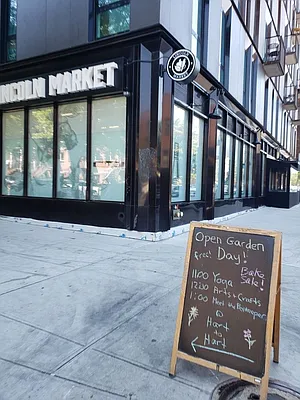 INCOLN MARKET
Open Garden
Day!
free!
Bake
Sale!
11:00 Yoga
12:30 Arts + Crafts
1:00 Meet the Beekeeper
@
Hart
to
Hart